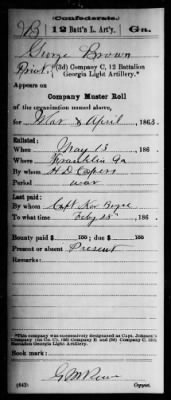 (Confederate.)
B | 12 Batt'n L. Art'y. | Ga.
George Brown
Privt., (3d) Company C, 12 Battalion
Georgia Light Artillery.*
Appears on
Company Muster Roll
of the organization named above,
for Mar & April, 1863.
Enlisted:
When May 13, 186 .
Where Franklin Ga
By whom H D Capers
Period war
Last paid:
By whom Capt
To what time Feby 28, 186 .
Bounty paid $ 100; due $ 100
Present or absent Present
Remarks:
*This company was successively designated as Capt. Johnson's
Company C, 12th
Battalion Georgia Light Artillery.
Book mark:
(642) Copyist.